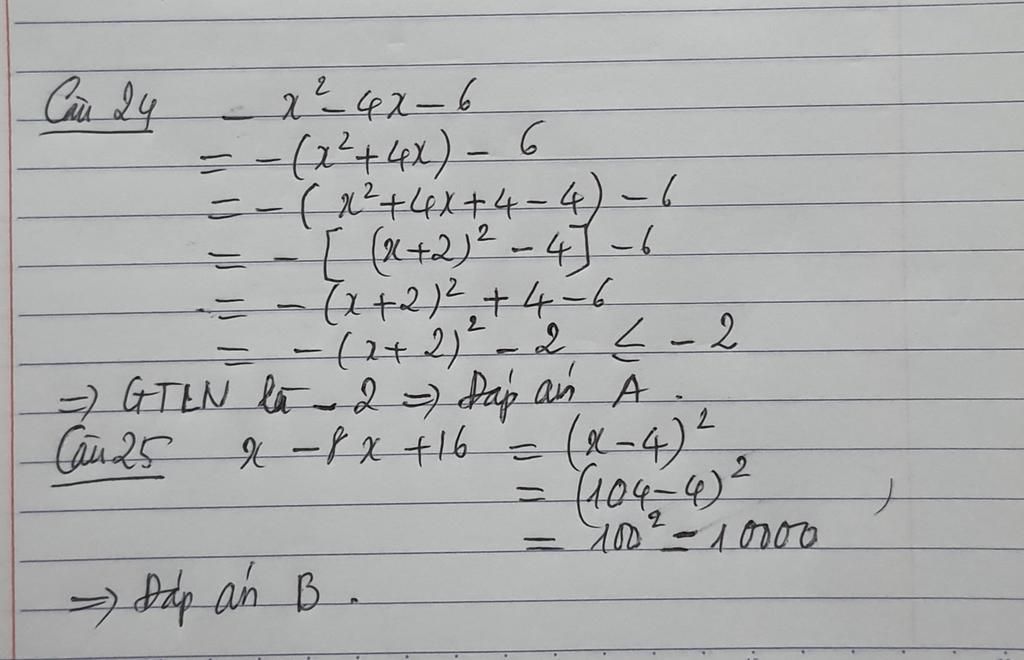 Câu 24 - x² - 4x - 6
= - (x² + 4x) - 6
= - ( x² + 4x + 4 - 4) - 6
= - [ (x+2)² - 4] - 6
= - (x + 2)² + 4 - 6
= - (x + 2)² - 2 ≤ - 2
=> GTLN là - 2 => Đáp án A .
Câu 25 x - 8x + 16 = (x - 4)²
= (104 - 4)² ,
= 100² = 10000
=> Đáp án B .